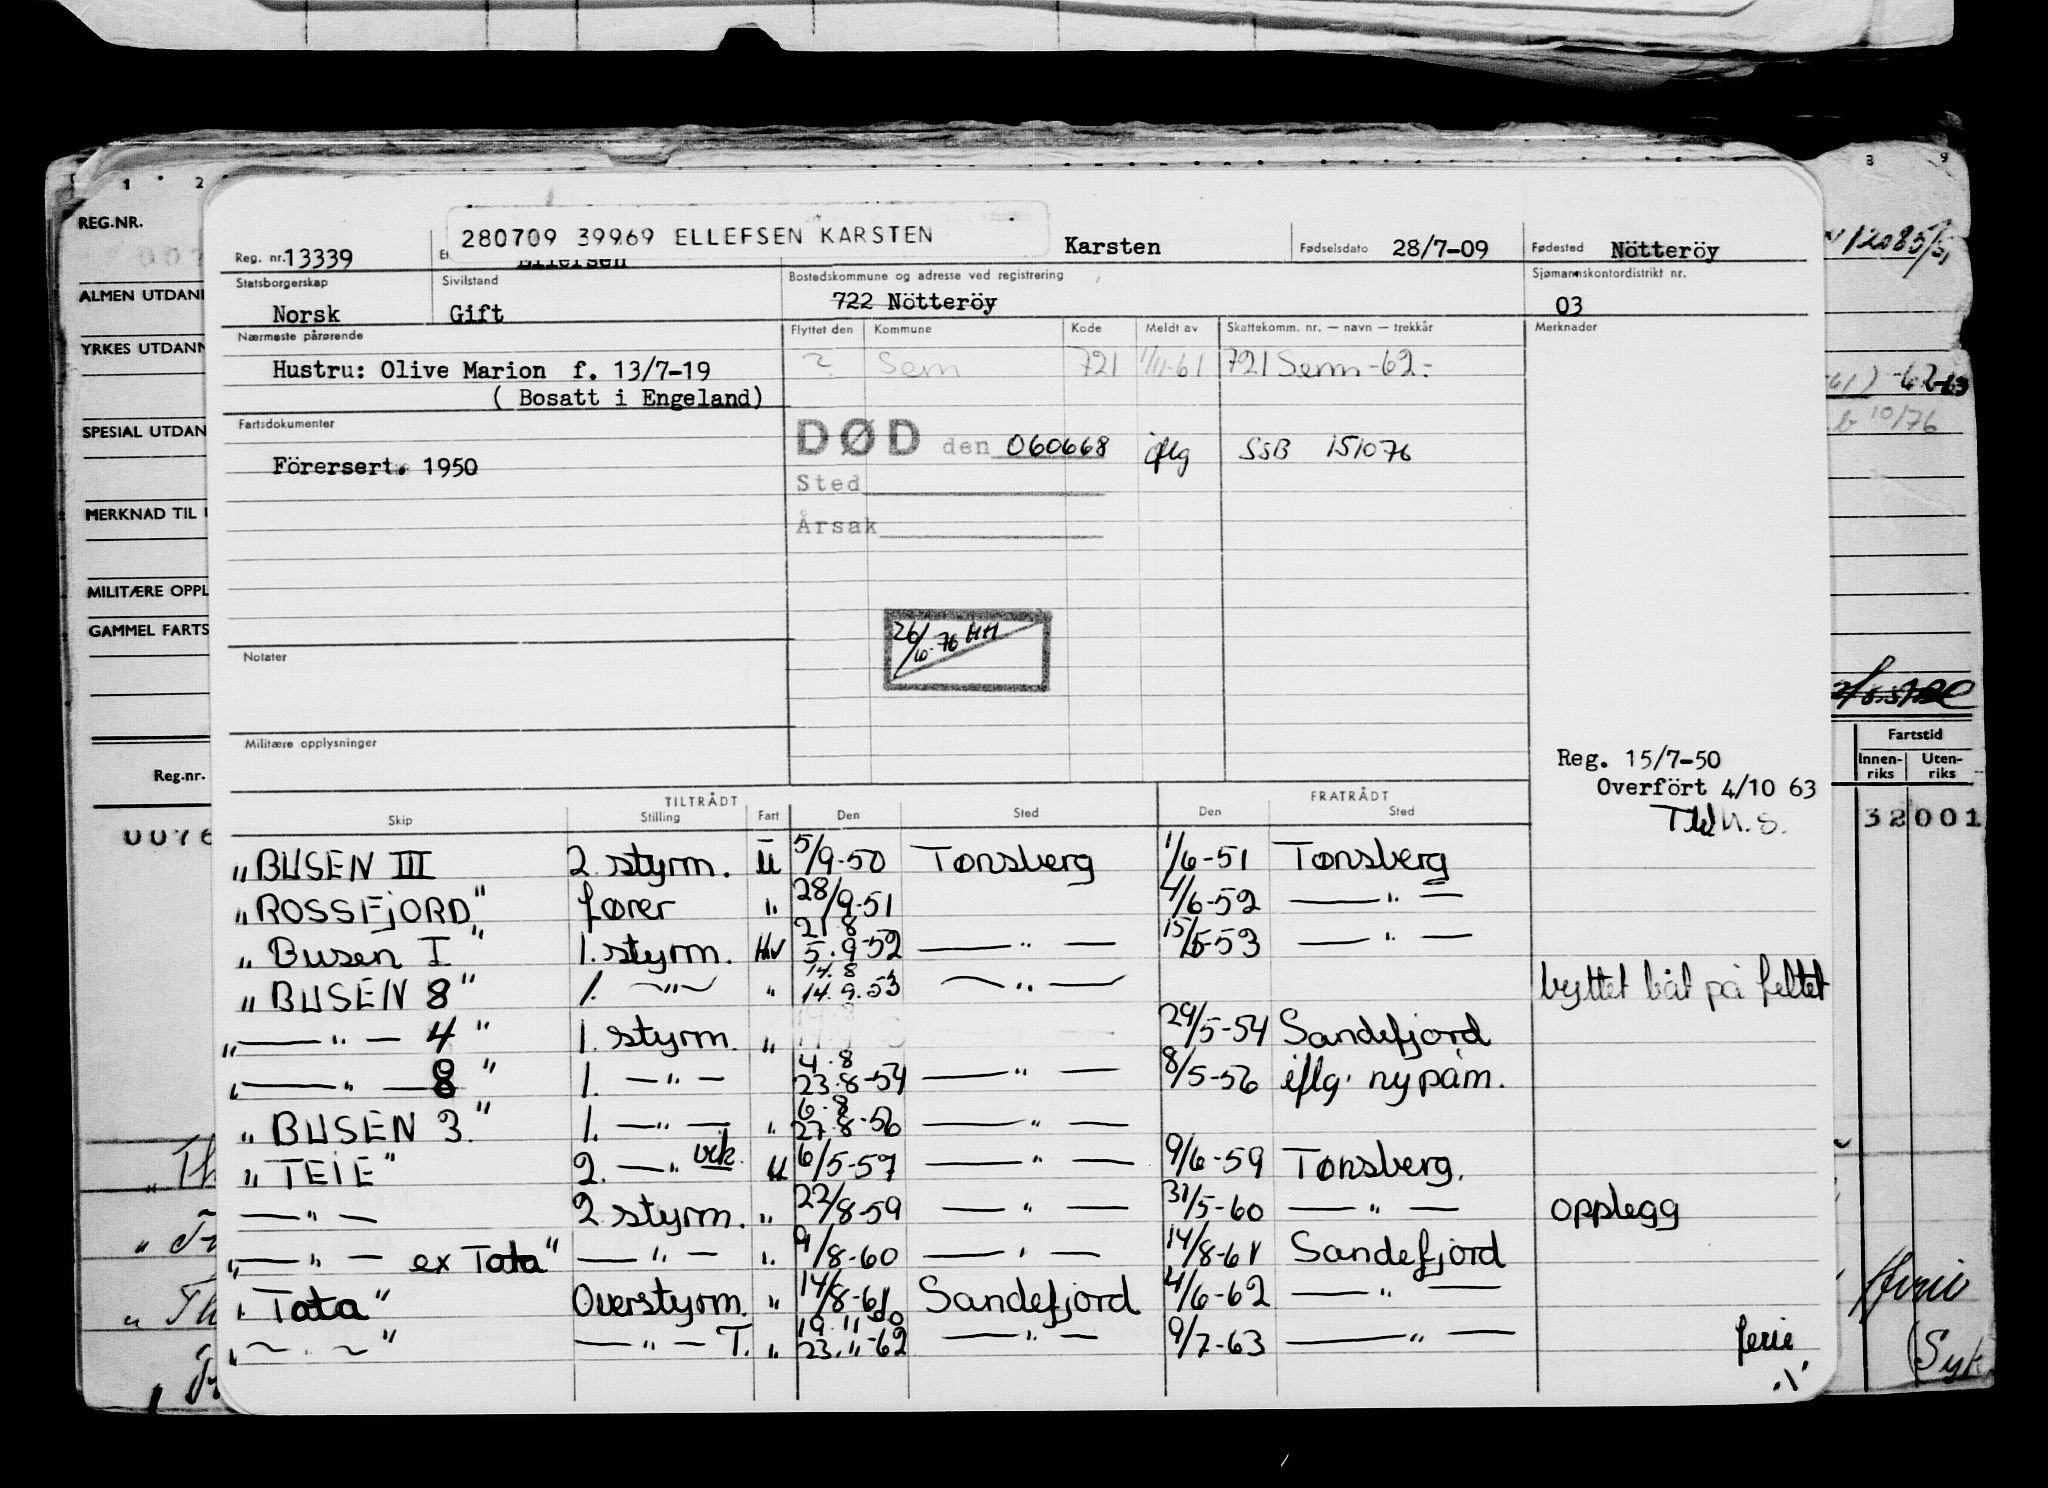 1 2 8 9
REG.NR.
ALMEN UTDAN
YRKES UTDANN
SPESIAL UTDAN
MERKNAD TIL
MILITÆRE OPPL
GAMMEL FARTS
Reg.nr.
0076
280709 39969 ELLEFSEN KARSTEN
Reg. nr. 13339 Karsten Fødselsdato 28/7-09 Fødested Nötteröy
Statsborgerskap Sivilstand Bostedskommune og adresse ved registrering Sjømannskontordistrikt nr.
Norsk Gift 722 Nötteröy 03
Nærmeste pårørende Flyttet den Kommune Kode Meldt av Skattekomm. nr. — navn — trekkår Merknader
Hustru: Olive Marion f. 13/7-19 ? Sem 721 1/11-61 721 Sem -62.-
( Bosatt i Engeland)
Fartsdokumenter
DØD den 060668 iflg SSB 151076
Förersert. 1950
Sted
Årsak
26/10-76 HH
Notater
Militære opplysninger
Reg. 15/7-50
Overfört 4/10 63
TILTRÅDT FRATRÅDT
Skip Stilling Fart Den Sted Den Sted
„BUSEN III 2 styrm. U 5/9-50 Tønsberg 1/6-51 Tønsberg
„ROSSFJORD" fører " 28/9-51 4/6-52 — " —
21 8
„Busen I" 1. styrm. Hv 5.9-52 — " — 15/5-53 — " —
14.8
„BUSEN 8" 1. — " — " 14.9.53 — " — byttet båt på feltet
„— " — 4" 1. styrm. " 29/5-54 Sandefjord
4.8
„— " — 8" 1. — " — 23.8-54 — " — 8/5-56 iflg. ny påm.
6.8
„BUSEN 3." 1. — " — " 27.8-56 — " —
„TEIE" 2. — " — vik. U 6/5-57 — " — 9/6-59 Tønsberg.
— " — 2 styrm. " 22/8-59 — " — 31/5-60 — " — opplegg
„— " — ex Tata" — " — " 9/8-60 — " — 14/8-61 Sandefjord
„Tata" Overstyrm. " 14/8-61 Sandefjord 4/6-62 — " —
„— " —" — " — T. " 23.11-62 — " — 9/7-63 — " — ferie
Fartstid
Innen-riks Uten-riks
32001